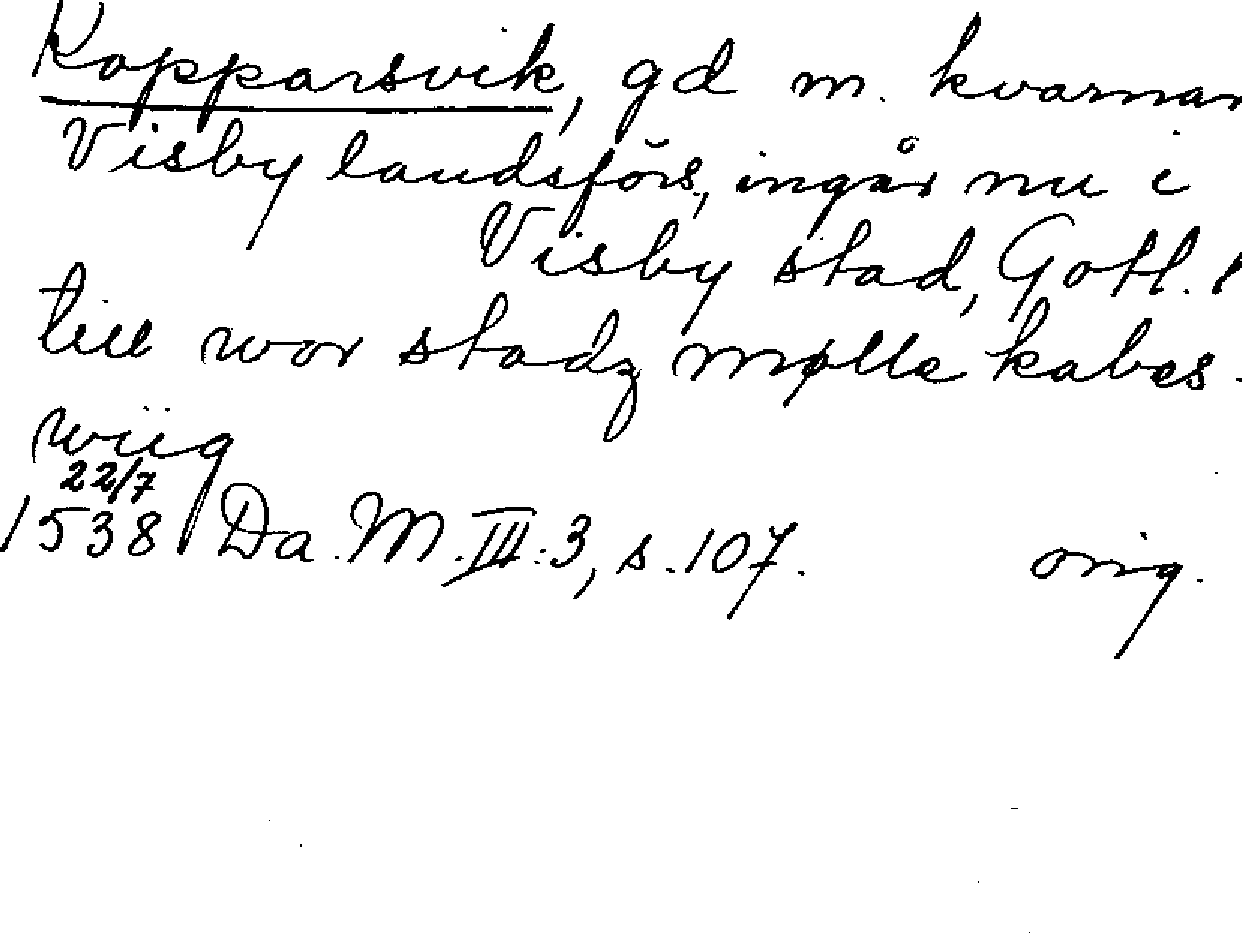 Kopparsvik, gd m. kvarnar
Visby landsförs, ingår nu i
Visby stad, Gotl.
till wor stadz mølle kabes-
wiig
22/7
1538 Da. M. III:3, s. 107. orig.